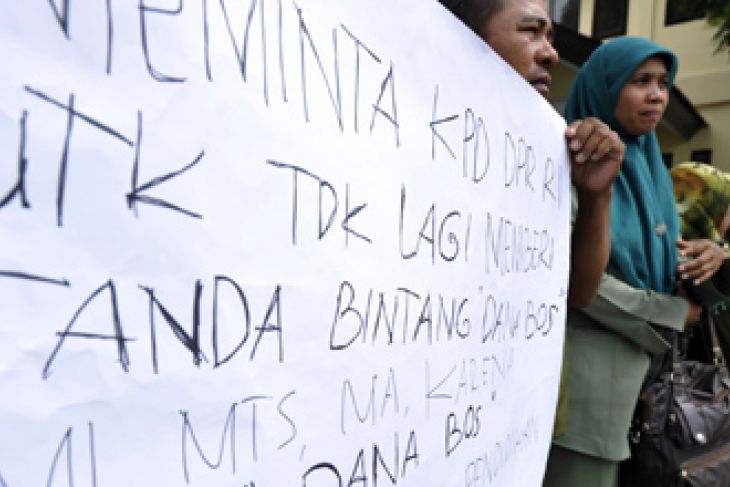 MEMINTA KPD DPR RI
UTK TDK LAGI MEMBERI
TANDA BINTANG "DANA BOS"
MI, MTS, MA, KARENA
DANA BOS